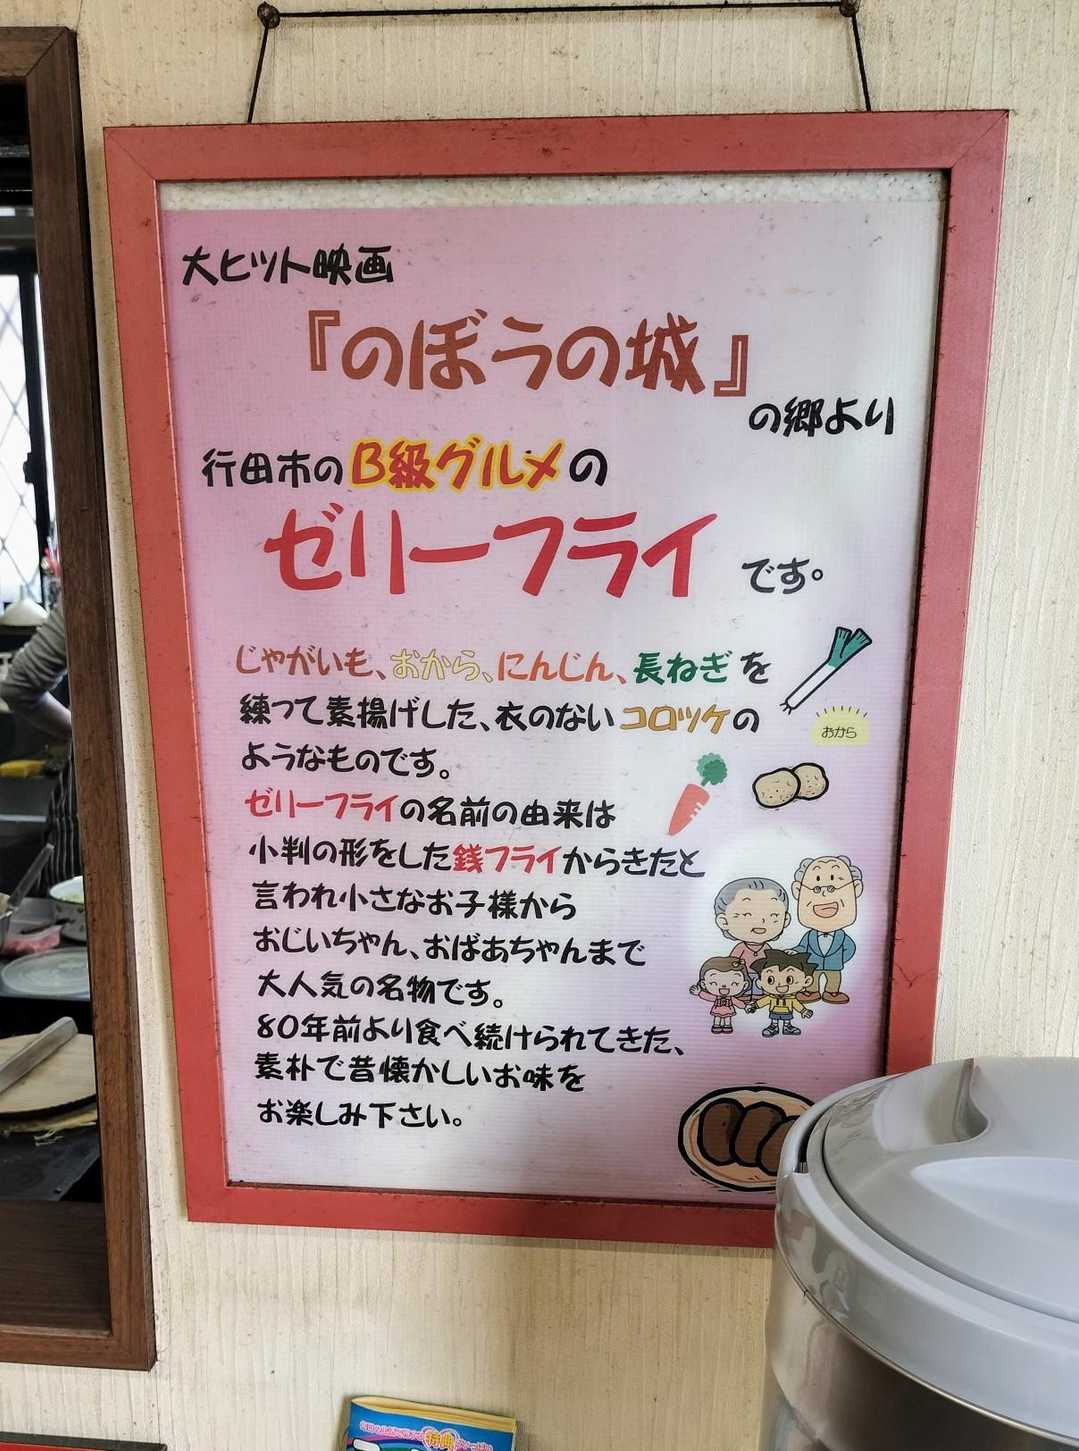 大ヒット映画
『のぼうの城』
の郷より
行田市のB級グルメの
ゼリーフライです。
じゃがいも、おから、にんじん、長ねぎを
練って素揚げした、衣のないコロッケの
ようなものです。
おから
ゼリーフライの名前の由来は
小判の形をした銭フライからきたと
言われ小さなお子様から
おじいちゃん、おばあちゃんまで
大人気の名物です。
80年前より食べ続けられてきた、
素朴で昔懐かしいお味を
お楽しみ下さい。
特典